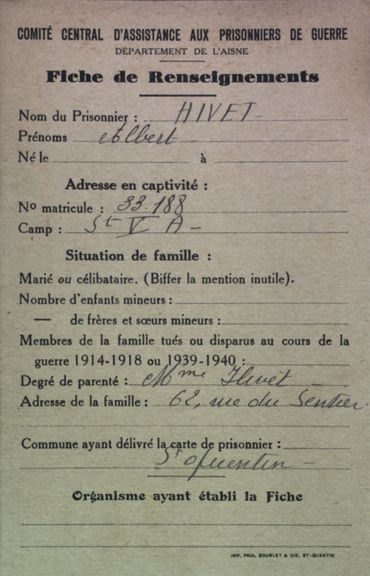 COMITÉ CENTRAL D'ASSISTANCE AUX PRISONNIERS DE GUERRE
DÉPARTEMENT DE L'AISNE
Fiche de Renseignements
Nom du Prisonnier : HIVET
Prénoms Albert
Né le à
Adresse en captivité :
No matricule : 33.188
Camp : St V A
Situation de famille :
Marié ou célibataire. (Biffer la mention inutile).
Nombre d'enfants mineurs :
— de frères et sœurs mineurs :
Membres de la famille tués ou disparus au cours de la
guerre 1914-1918 ou 1939-1940 :
Degré de parenté : Mme Hivet
Adresse de la famille : 62, rue du Sentier.
Commune ayant délivré la carte de prisonnier :
St Quentin
Organisme ayant établi la Fiche
IMP. PAUL BOURLET & CIE, ST-QUENTIN